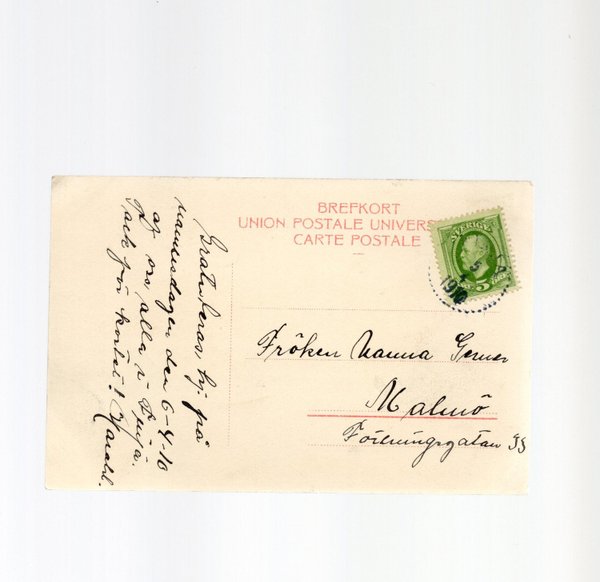 BREFKORT
UNION POSTALE UNIVERS
CARTE POSTALE
SVERIGE
5
1910
Gratuleras hj. på
namnsdagen den 6-4-10
af oss alla i
Tack för kortet! Harald.
Fröken Nanna
Malmö
Föreningsgatan 35